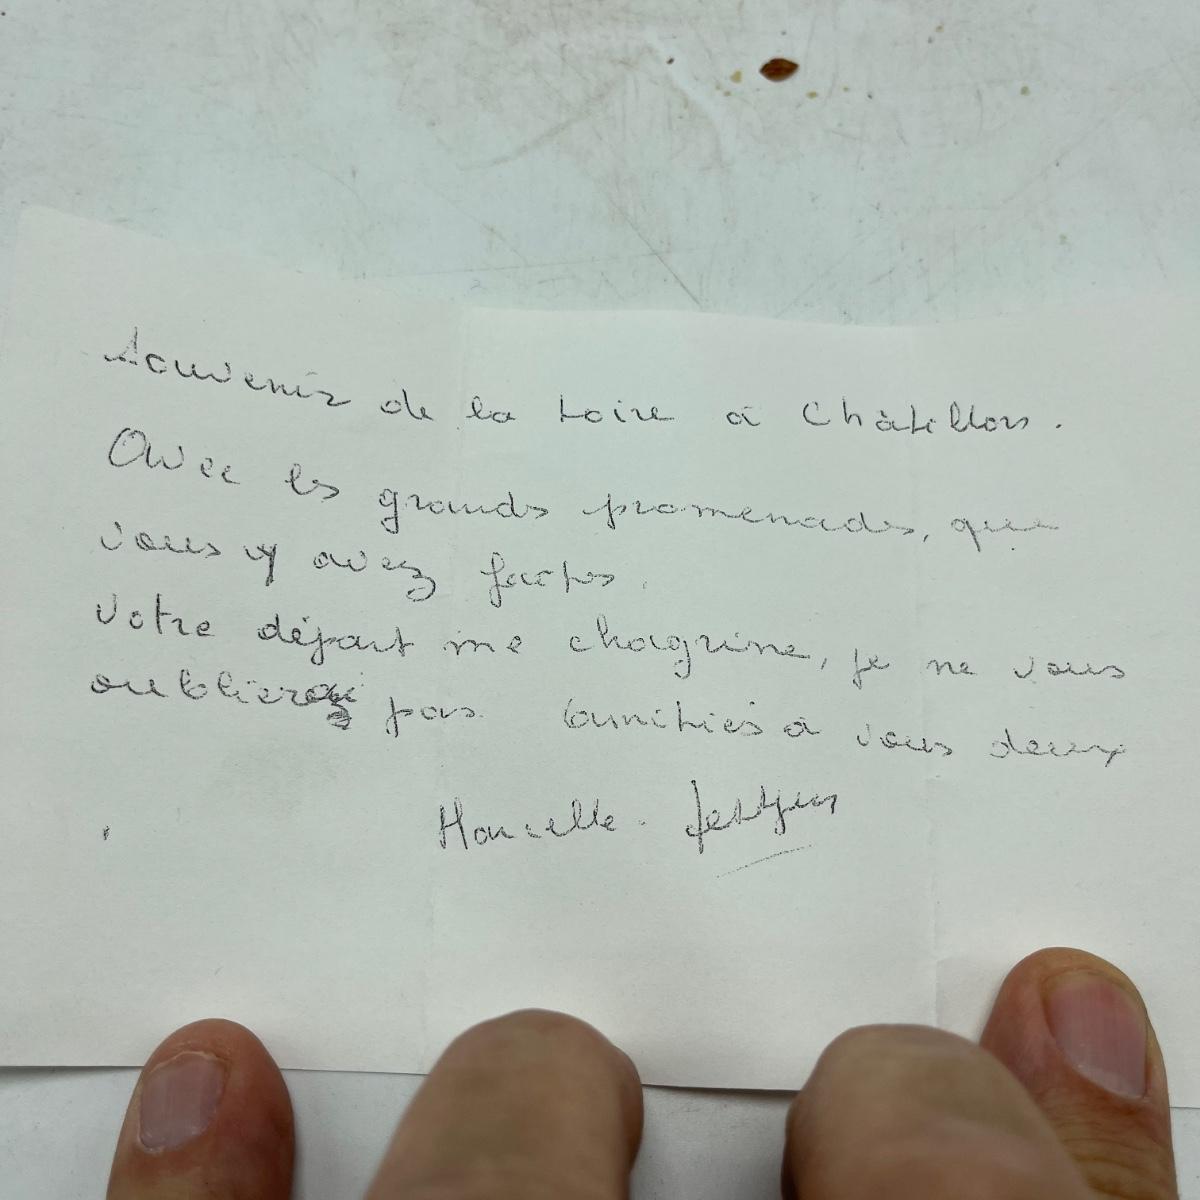 Souvenir de la Loire à Châtillon.
Avec les grands promenades, que
vous y avez faites.
Votre départ me chagrine, je ne vous
oublierai pas. Amitiés à vous deux
Marcelle.